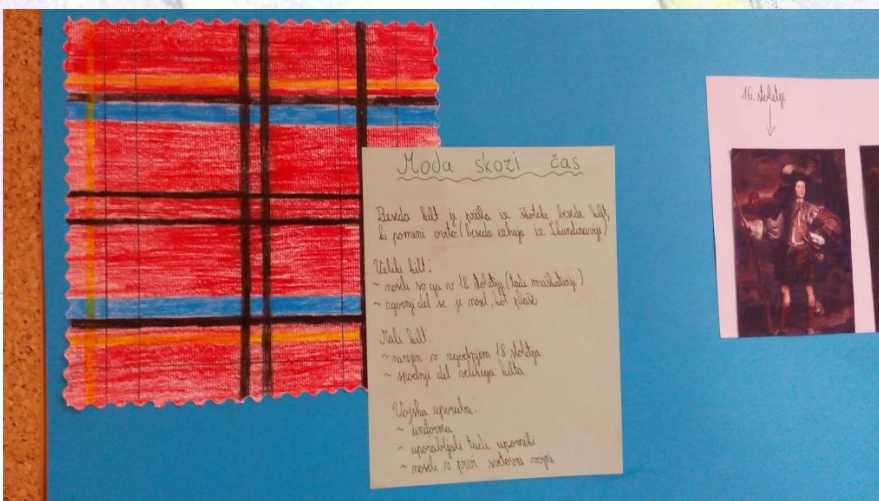 Moda skozi čas
Beseda kilt je prišla iz škotske besede kilt,
ki pomeni ovito. (beseda izhaja iz Skandinavije)
Veliki kilt:
~ nosili so ga v 18 stoletju (tudi muškatirji)
~ zgornji del se je nosil kot plašč
Mali kilt:
~ v zgodnjem 18 stoletju
~ spodnji del velikega kilta
Vojska uporaba:
~ uniforma
~ uporabljali tudi uporniki
~ nosili v prvi svetovni vojni
16. stoletje